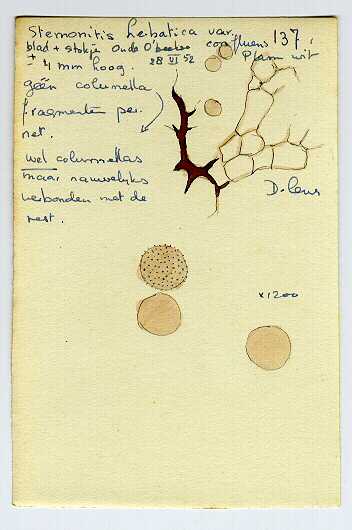 Stemonitis herbatica var. 137.
blad + stokje Oude confluens Plasm wit
± 4 mm hoog. 28 VI 52
géén columella
fragmenten per.
net.
wel columellas
maar nauwelijks
verbonden met de
rest.
D. leus
x1200